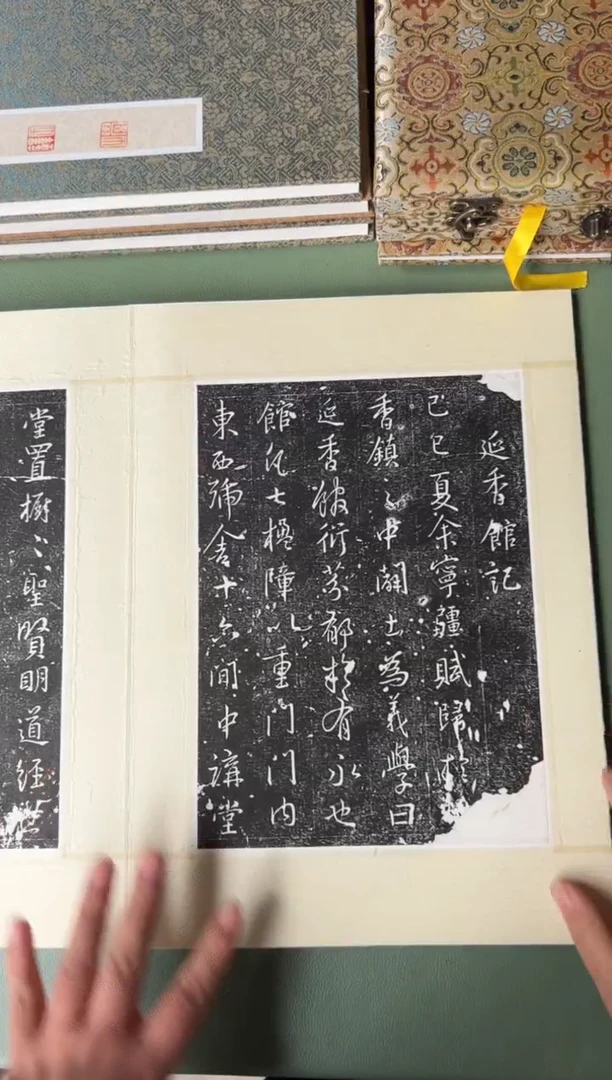 延香館記
己巳夏余寧疆賦歸於
香鎮之中闢土為義學曰
延香馥衍芬郁於有永也
館凡七楹障以重門門内
東西號舍十六間中講堂
堂置樹以聖賢明道經